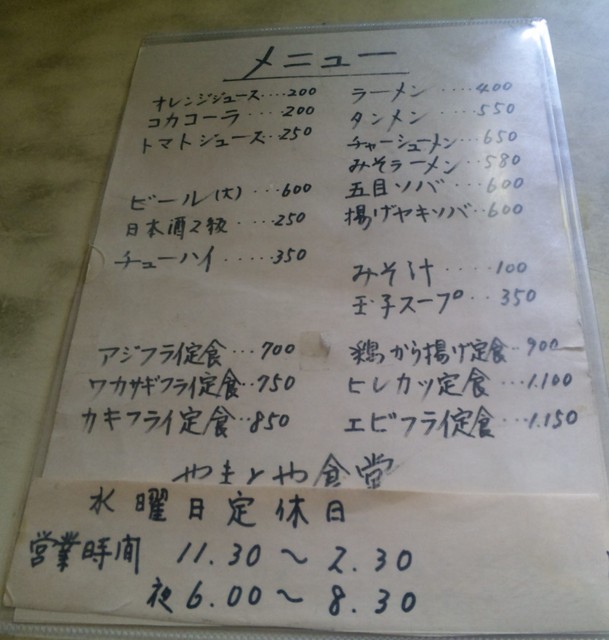 メニュー
オレンジジュース・・・200
コカコーラ・・・200
トマトジュース・・250
ビール(大)・・・600
日本酒2級・・・250
チューハイ・・・・・350
ラーメン・・・・400
タンメン・・・・550
チャーシューメン・・650
みそラーメン・・580
五目ソバ・・・600
揚げヤキソバ・・600
みそ汁・・・・・100
玉子スープ・・350
アジフライ定食・・・700
ワカサギフライ定食・・750
カキフライ定食・・850
鶏から揚げ定食・・900
ヒレカツ定食・・・1.100
エビフライ定食・・・1.150
やまとや食堂
水曜日定休日
営業時間 11.30〜2.30
夜6.00〜8.30